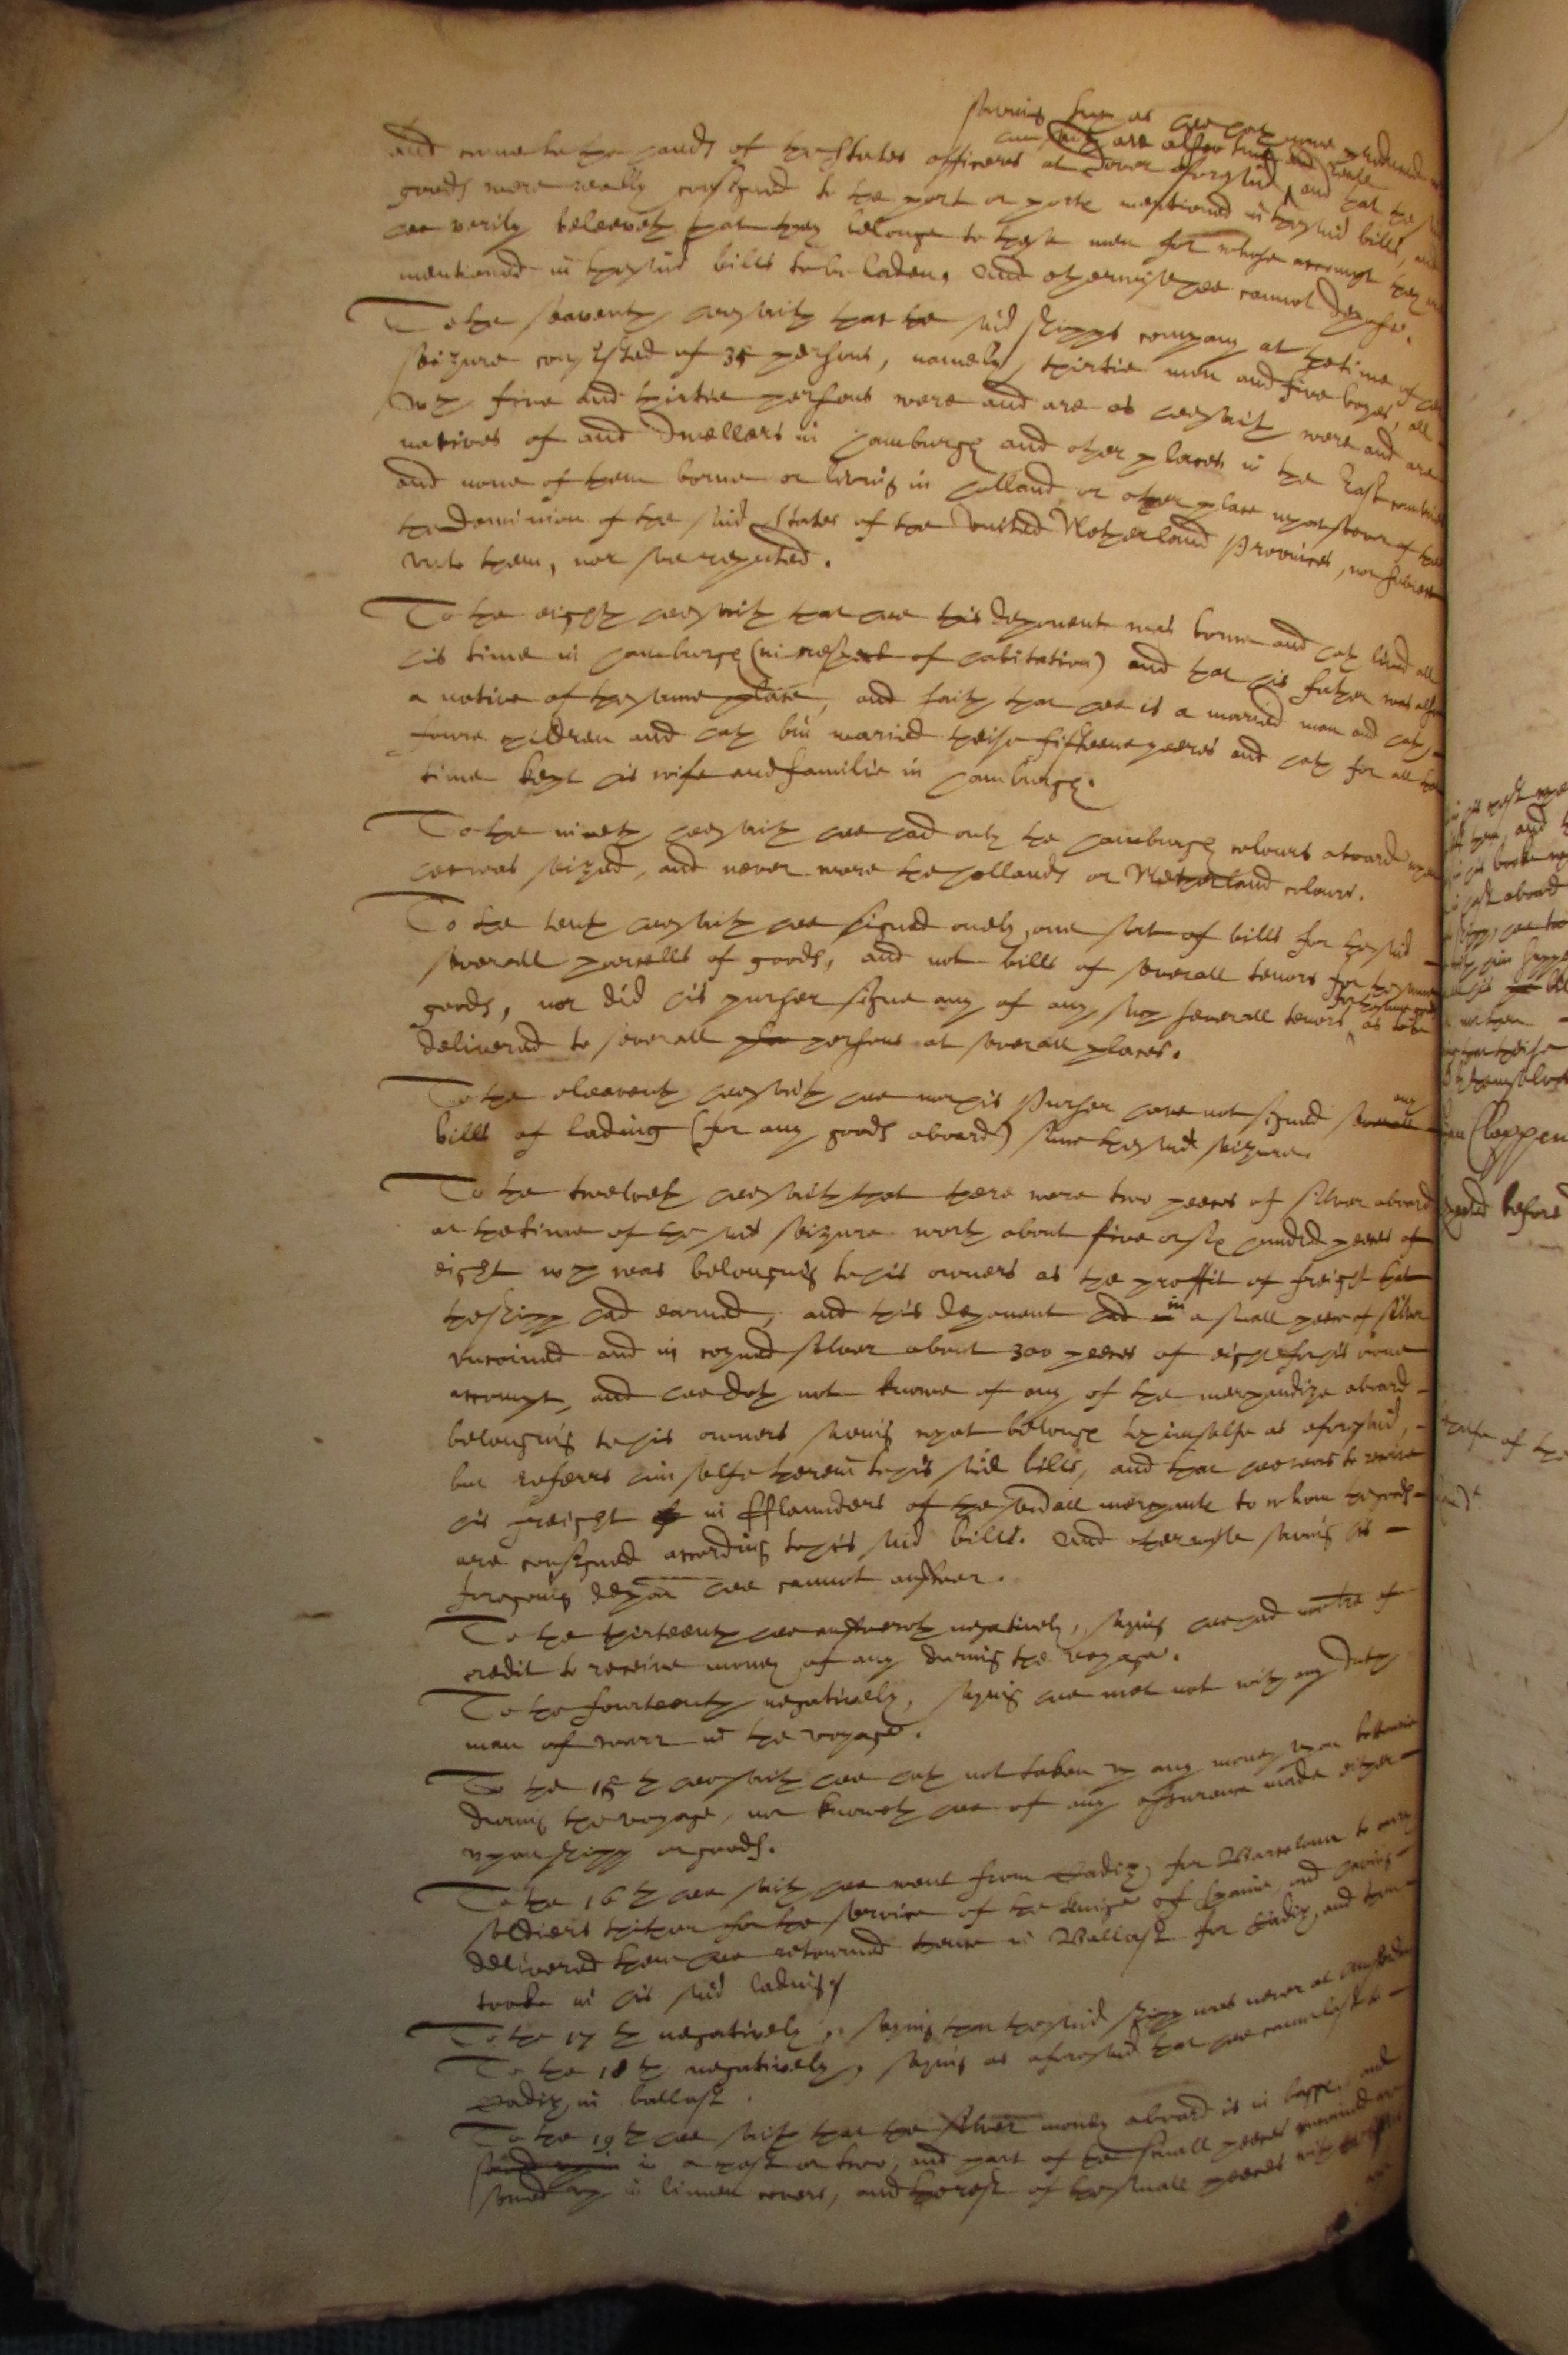 saving such as hee hath now produced
hee saith are alsoe true and reall
and came to the hands of the States officers at Dover aforesaid, and that the
goods were really consigned to the port or ports mentioned in the said bills, and
hee verily beleeveth that they belonge to those men for whose accompt they are
mentioned in the said bills to be laden, And otherwise hee cannot depose.
To the seaventh hee saith that the said shipps company at the time of her
seizure consisted of 35 persons, namely thirtie men and five boyes, all
which five and thirtie persons were and are as hee saith were and are
natives of and dwellers in Hamburgh and other places in the East countrie
and none of them borne or living in Holland or other place whatsoever of the
the dominion of the said States of the United Netherland Provinces, nor subiects
unto them, nor soe reputed.
To the eighth hee saith that hee this deponent was borne and hath lived all
his time in Hamburgh (in respect of habitation) and that his father was alsoe
a native of the same place, and saith that hee is a maried man and hath
foure children and hath bin maried theise fifteene yeeres and hath for all the
time kept his wife and familie in Hamburgh.
To the nineth hee saith hee had only the Hamburgh colours aboard when
hee was seized, and never wore the Hollands or Netherland colours.
To the tenth hee saith hee signed onely one sort of bills for the said
severall parcells of goods, and not bills of severall tenors for the same
goods, nor did his purser signe any of any such severall tenors for the same goods as to be
delivered to severall persons at severall places.
To the eleaventh hee saith hee nor his Purser have not signed any severall
bills of lading (for any goods aboard) since the said seizure.
To the twelveth hee saith that there were two peeces of silver aboard
at the time of the said seizure worth about five or six hundred peeces of
eight which was belonging to his owners as the proffit of freight that
the shipp had earned, and this deponent had in a small peece of silver
uncoined and in coyned silver about 300 peeces of eight of his owne
accompt, and hee doth not knowe of any of the merchandize aboard
belonging to his owners saving what belonge to himselfe as aforesaid,
but referrs himselfe therein to his said bills, and that hee was to receive
his freight in fflaunders of the severall merchants to whom the goods
are consigned according to his said bills. And otherwise saving his
foregoing deposition hee cannot answer.
To the thirteenth hee answereth negatively, saying hee had noe tre of
credit to receive money of any during the voyage.
To the fourteenth negatively, saying hee met not with any Dutch
man of warr in the voyage.
To the 15th hee saith hee hath not taken up any money upon bottomrie
during the voyage, nor knoweth hee of any assurance made either
upon shipp or goods.
To the 16th hee saith hee went from Cadiz for Barcelona to carry
soldiers thither for the service of the kinge of Spaine, and having
delivered them hee returned thence in Ballast for Cadiz, and there
tooke in his said lading
To the 17th negatively, saying that the said shipp was never at Amsterdam
To the 18th negatively, saying as aforesaid that hee came last to
Cadiz in ballast.
To the 19th hee saith that the silver money aboard is in baggs, and
in a chest or two, and part of the small peeces uncoined are
sowed up in linnen covers, and the rest of the small peeces with